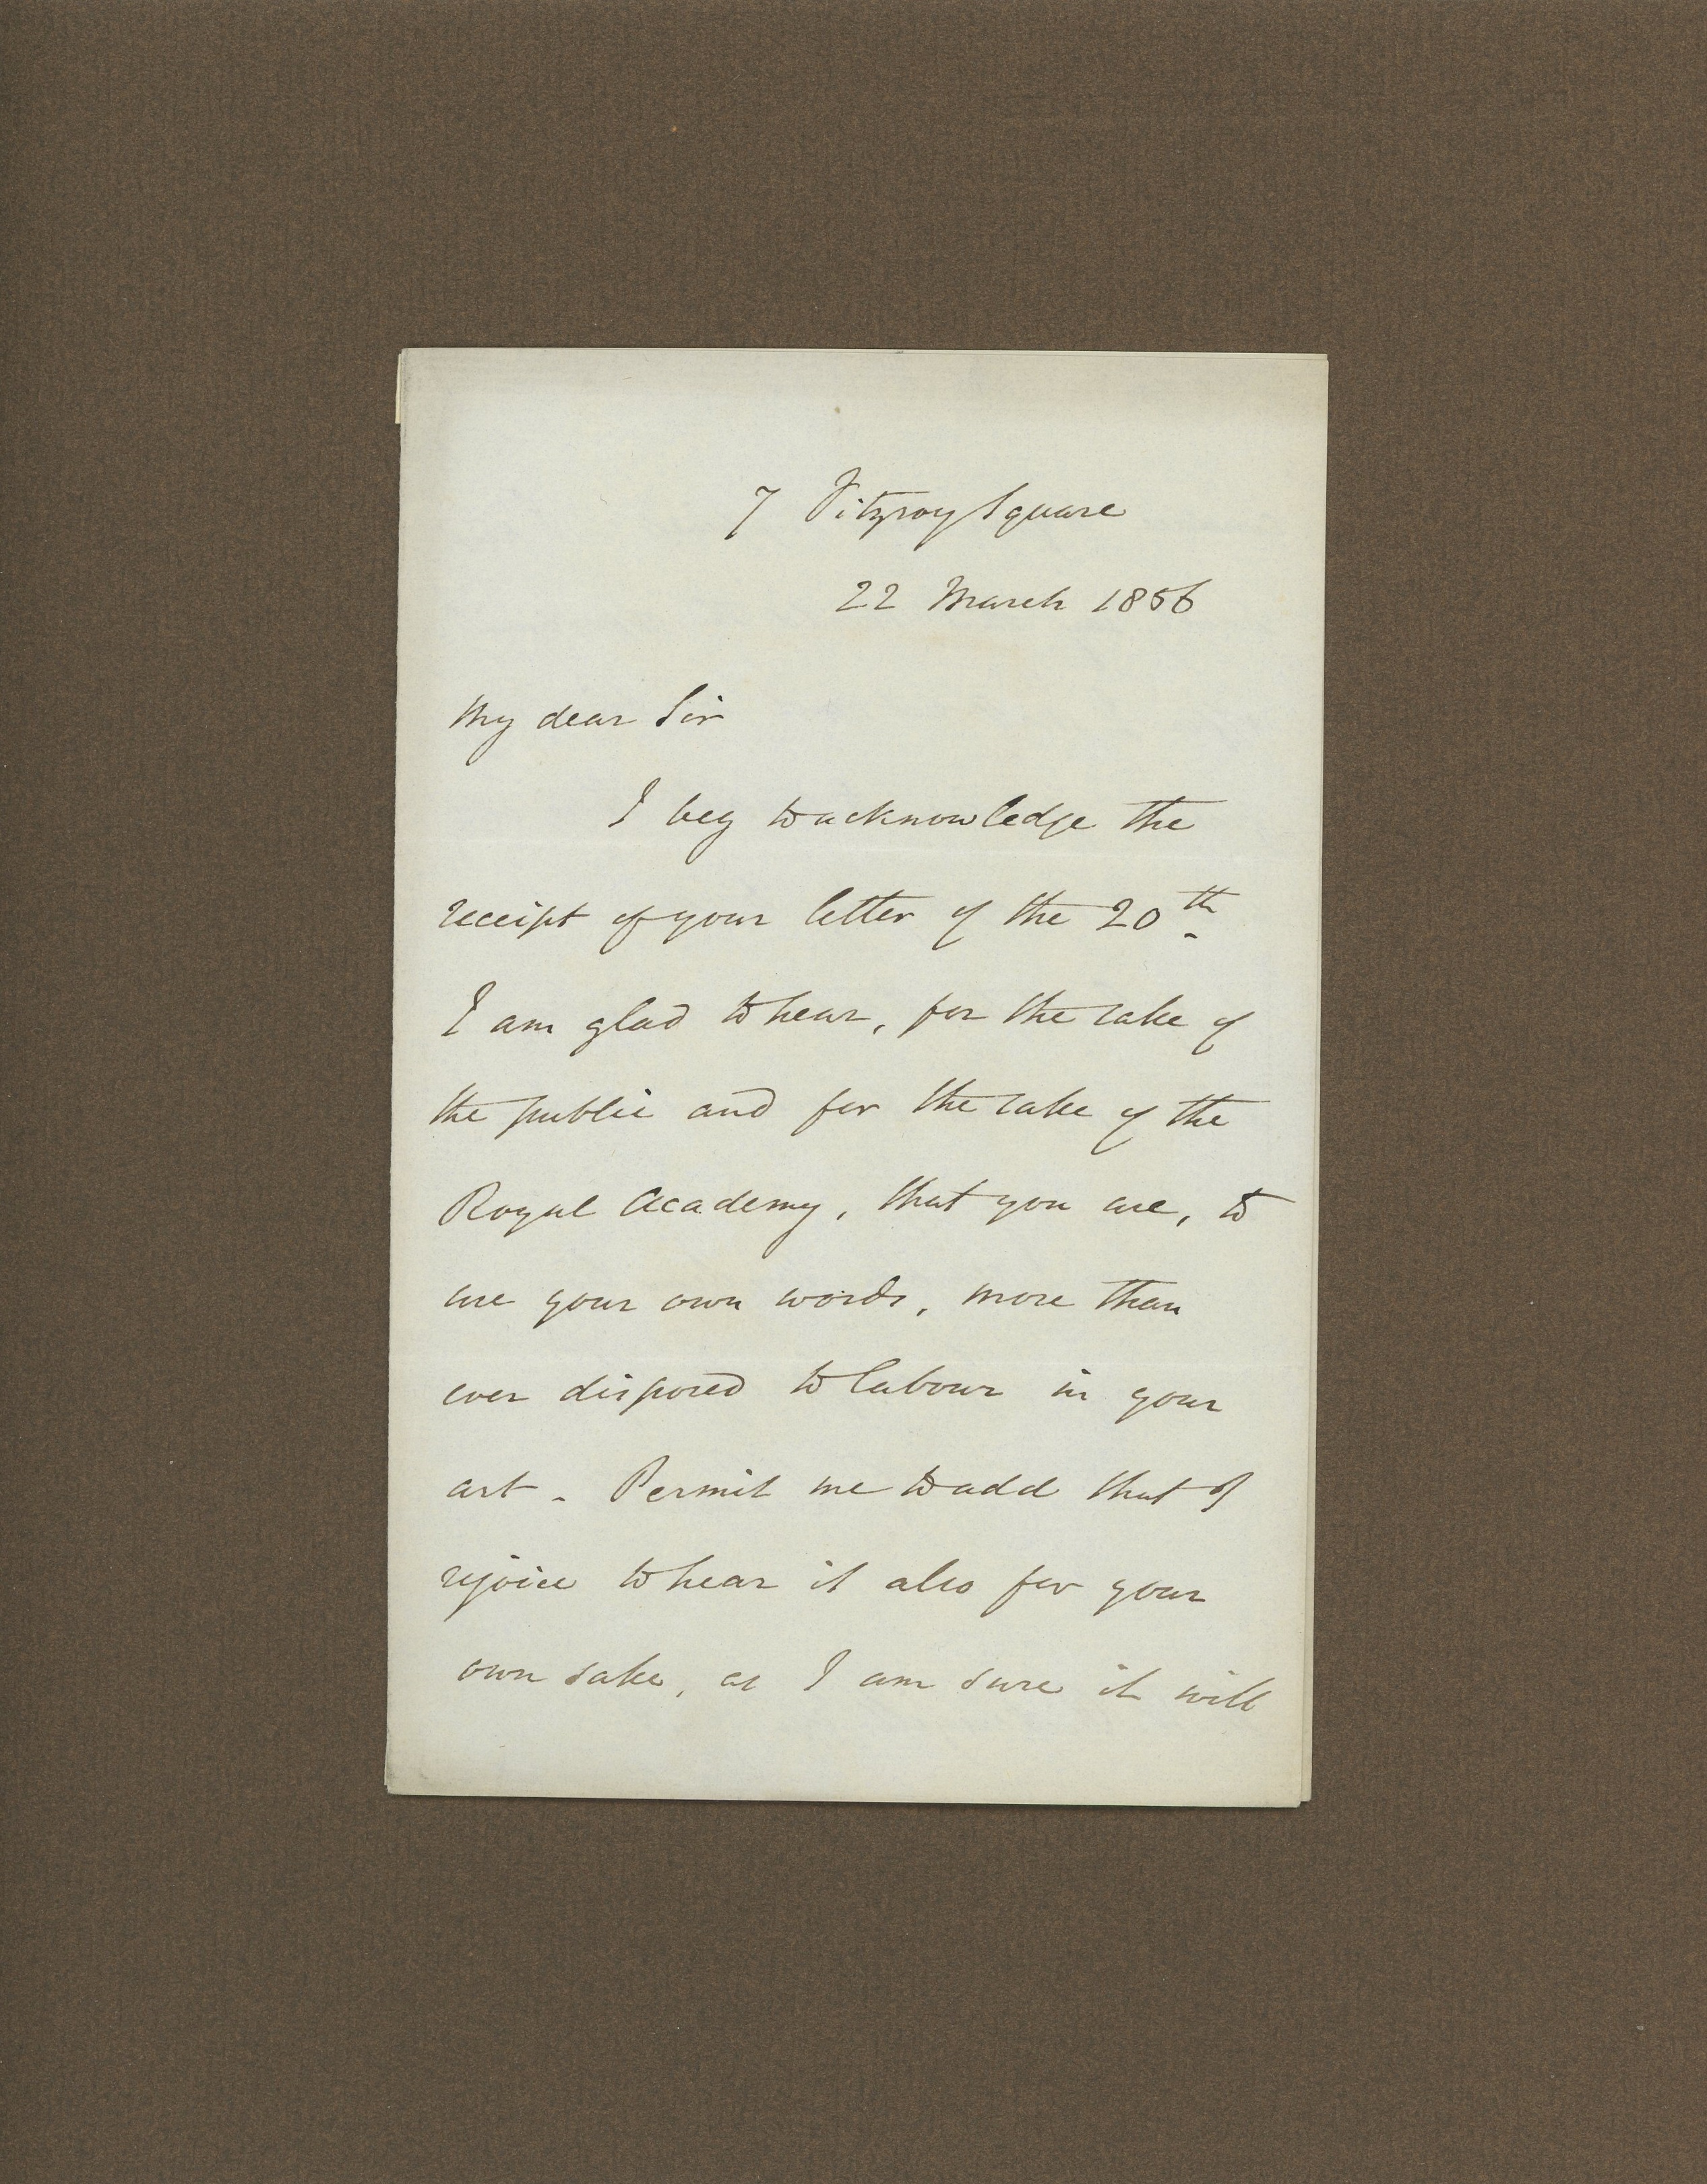 7 Fitzroy Square
22 March 1856
My dear Sir
I beg to acknowledge the
receipt of your letter of the 20th
I am glad to hear, for the sake of
the public and for the sake of the
Royal Academy, that you are, to
use your own words, more than
ever disposed to labour in your
art - Permit me to add that I
rejoice to hear it also for your
own sake, as I am sure it will